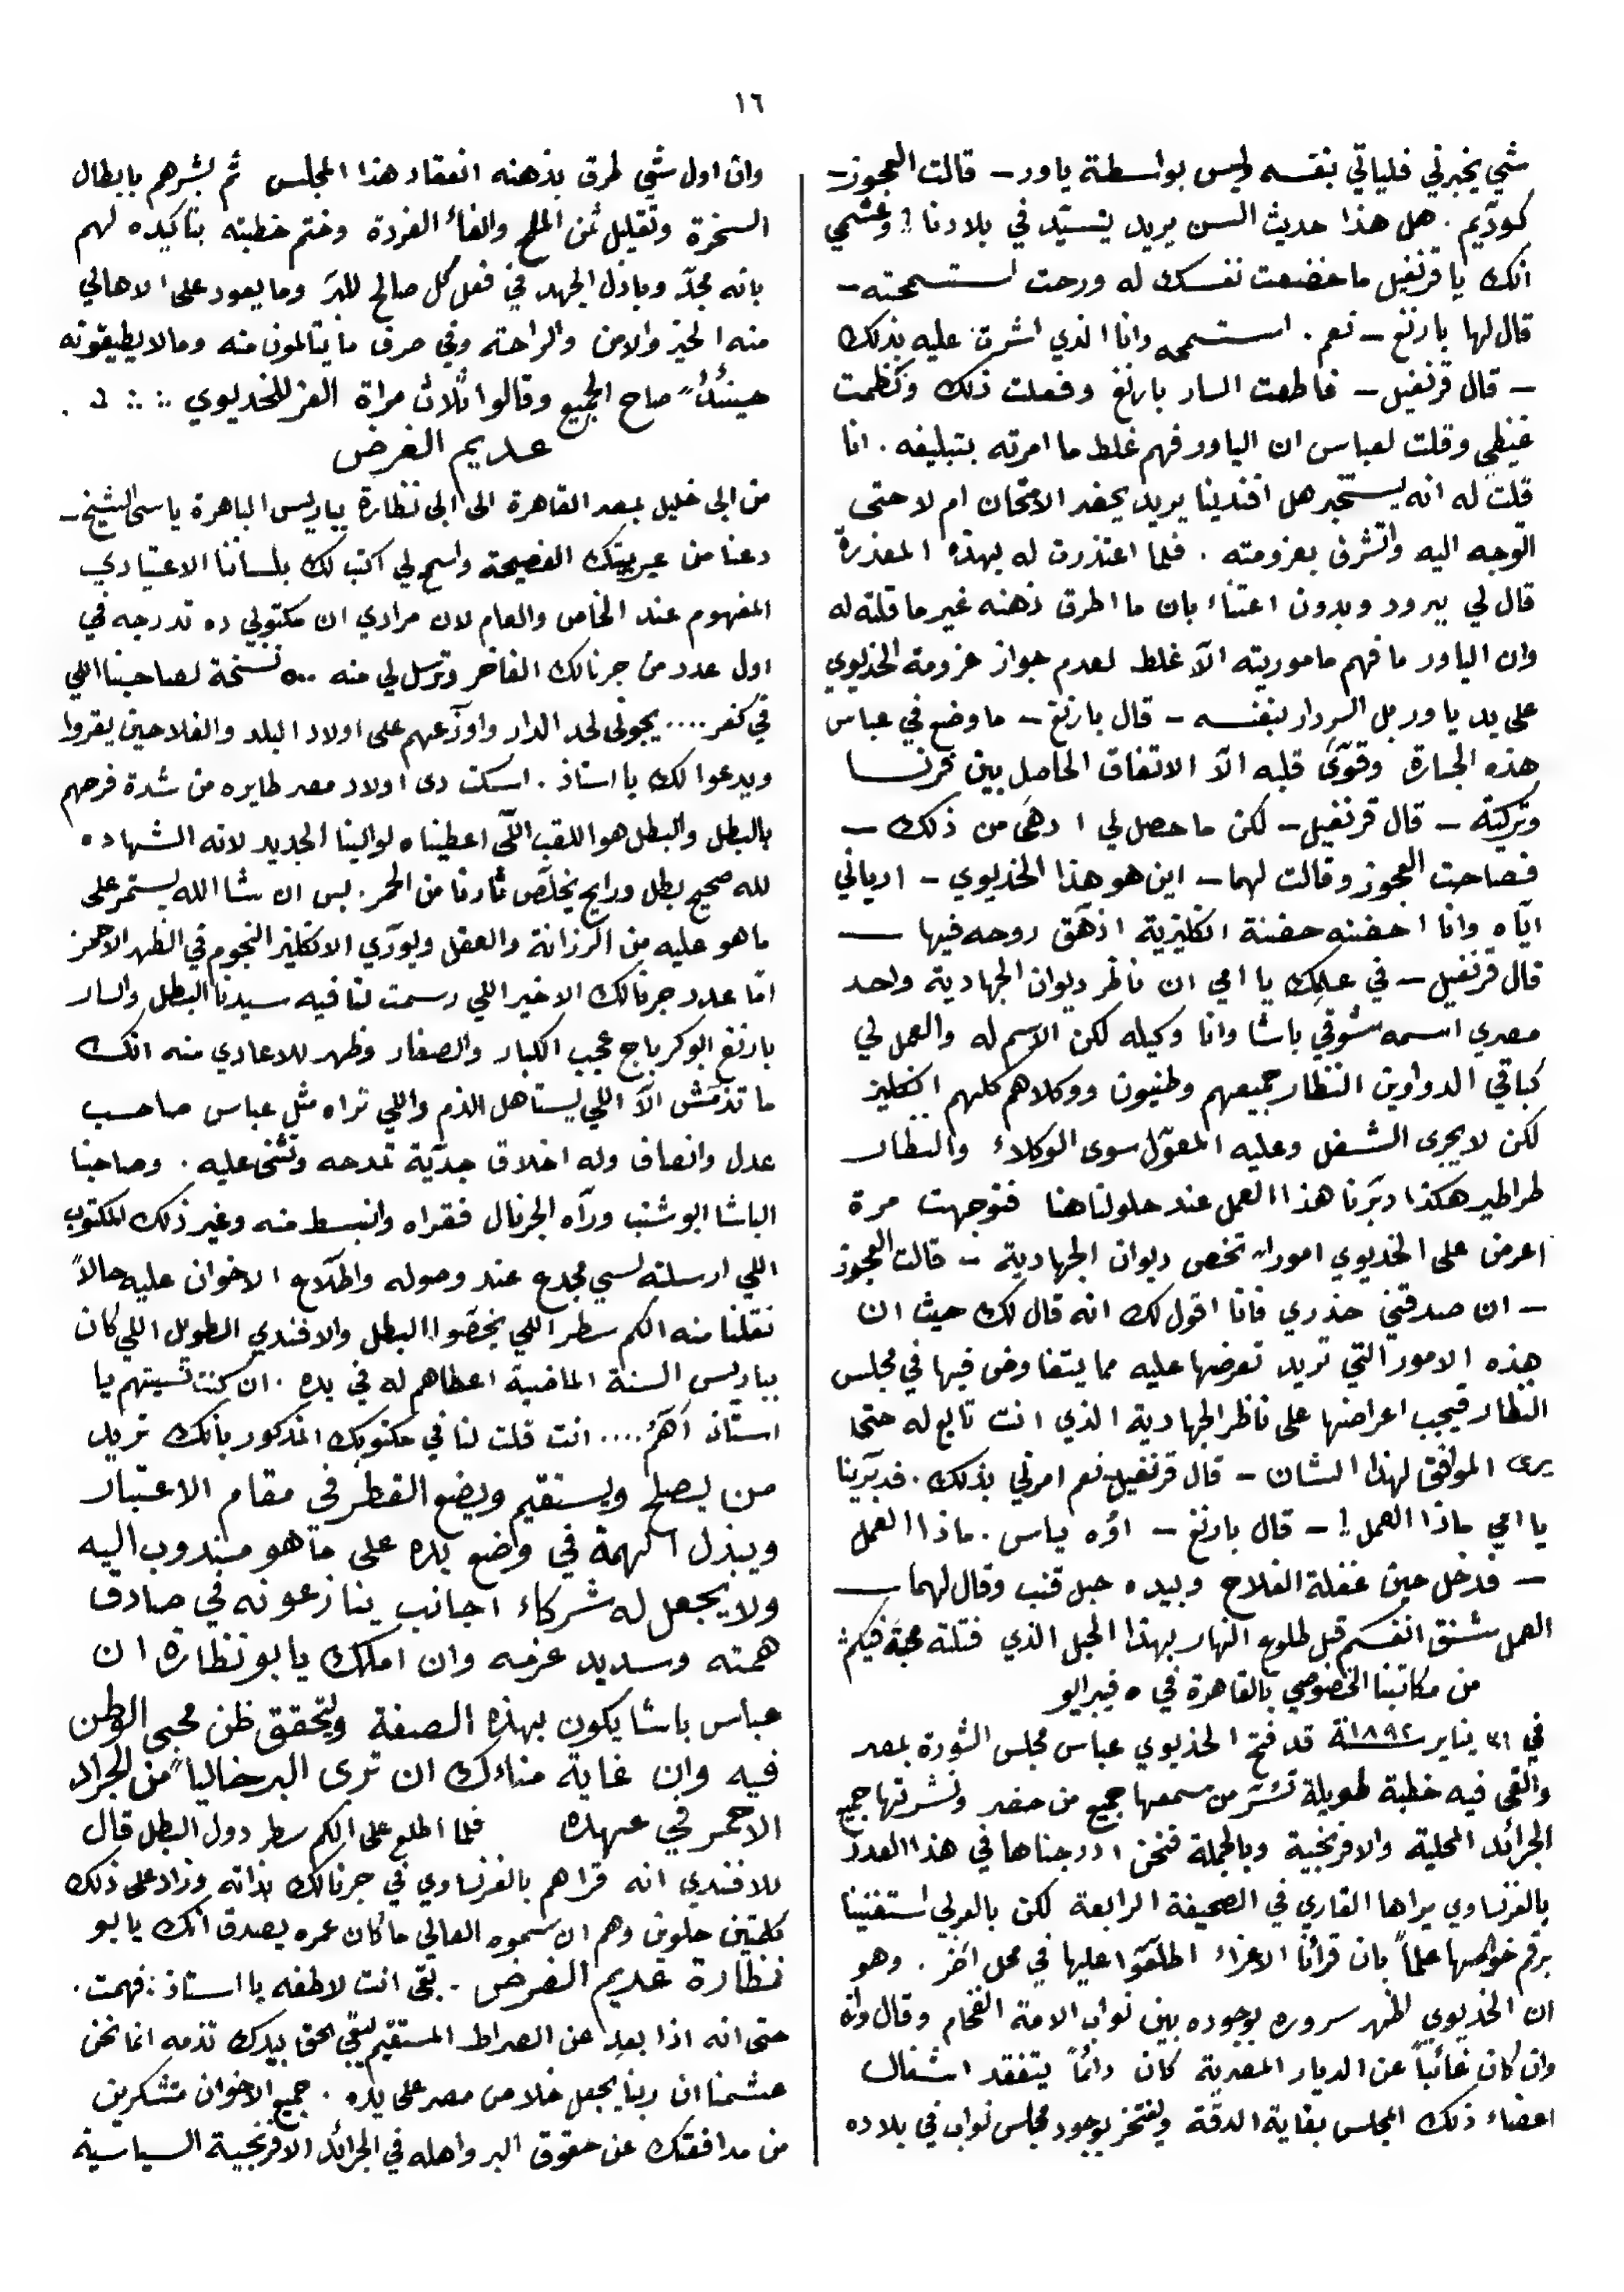 ١٦
شي يخبرني فلياتي بنفسه وليس بواسطة ياور – قالت العجوز –
كودّيم . هل هذا حديث السن يريد يتسيّد في بلادنا !! وعشمي
انك يا قرنفيل ما خضعت نفسك له ورحت استسمحته –
قال لها بارنغ – نعم . استسمحه وانا الذي اشرت عليه بذلك
– قال قرنفيل – فاطعت السار بارنغ وفعلت ذلك وكظمت
غيظي وقلت لعباس ان الياور فهم غلط ما امرته بتبليغه . انا
قلت له انه يستخبر هل افندينا يريد يحضر الامتحان ام لا حتى
اتوجه اليه واتشرف بعزومته . فلما اعتذرت له بهذه المعذرة
قال لي ببرود وبدون اعتناء بان ما اطرق ذهنه غير ما قلته له
وان الياور ما فهم ماموريته الاّ غلط لعدم جواز عزومة الخديوي
على يد ياور بل السردار بنفسه – قال بارنغ – ما وضع في عباس
هذه الجسارة وقوّى قلبه الاّ الاتفاق الحاصل بين فرنسا
وتركية – قال قرنفيل – لكن ما حصل لي ادهى من ذلك –
فصاحت العجوز وقالت لهما – اين هو هذا الخديوي – ارياني
ايّاه وانا احضنه حضنة انكليزية اذهّق روحه فيها –
قال قرنفيل – في علمك يا امي ان ناظر ديوان الجهادية واحد
مصري اسمه شوقي باشا وانا وكيله لكن الاسم له والعمل لي
كباقي الدواوين النظار جميعهم وطنيون ووكلاهم كلهم انكليز
لكن لا يجرى الشغل وعليه المعوّل سوى الوكلاء والنظار
طراطير هكذا دبّرنا هذا العمل عند حلولنا هنا فتوجهت مرة
اعرض على الخديوي امورا تخص ديوان الجهادية – قالت العجوز
– ان صدقتني حذري فانا اقول لك انه قال لك حيث ان
هذه الامور التي تريد تعرضها عليه مما يتفاوض فيها في مجلس
النظار فيجب اعراضها على ناظر الجهادية الذي انت تابع له حتى
يرى الموافق لهذا الشان – قال قرنفيل نعم امرني بذلك . فدبّرينا
يا امي ماذا العمل !! – قال بارنغ – اوّه ياس . ماذا العمل
– فدخل حين غفلة الفلاح وبيده حبل قنب وقال لهما –
العمل شنق انفسكم قبل طلوع النهار بهذا الحبل الذي فتلته محبةً فيكم
من مكاتبنا الخصوصي بالقاهرة في ٥ فبراير
في ٣١ يناير سنة ١٨٩٢ قد فتح الخديوي عباس مجلس الشورة بمصر
والقى فيه خطبة طويلة تسرّ من سمعها جميع من حضر ونشرتها جميع
الجرائد المحلية والافرنجية وبالجملة فنحن ادرجناها في هذا العدد
بالفرنساوي يراها القاري في الصحيفة الرابعة لكن بالعربي استغنينا
برقم خواصها علماً بان قرائنا الاعزاء اطلعّوا عليها في محل اخر . وهو
ان الخديوي اظهر سروره بوجوده بين نواب الامة الفخام وقال وانه
وان كان غائباً عن الديار المصرية كان دائماً يتفقد اشغال
اعضاء ذلك المجلس بغاية الدقّة ويفتخر بوجود مجلس نواب في بلاده
وان اول شي طرق بذهنه انعقاد هذا المجلس ثم بشرهم بابطال
السخرة وتقليل ثمن الملح والغاء الفردة وختم خطبته بتاكيده لهم
بانه مجدّ وباذل الجهد في فعل كل صالح للبرّ وما يعود على الاهالي
منه الخير والامن والراحة وفي صرف ما يتالمون منه وما لا يطيقونه
حينئذٍ صاح الجميع وقالوا ثلاث مراة العز للخديوي
عديم الغرض
من ابى خليل بمصر القاهرة الى ابى نظارة بباريس الباهرة ياسى الشيخ –
دعنا من عربيتك الفصيحة واسمح لي اكتب لك بلساننا الاعتيادي
المفهوم عند الخاص والعام لان مرادي ان مكتوبي ده تدرجه في
اول عدد من جرنالك الفاخر وترسل لي منه ٥٠٠ نسخة لصاحبنا اللي
في كفر .... يجونى لحد الدار واوزّعهم على اولاد البلد والفلاحين يقروا
ويدعوا لك يا استاذ . اسكت دى اولاد مصر طايره من شدة فرحهم
بالبطل والبطل هو اللقب اللّى اعطيناه لوالينا الجديد لانه الشهاده
لله صحيح بطل ورايح يخلّص ثارنا من الحمر . بس ان شا الله يستمر على
ما هو عليه من الرزانة والعقل ويورّي الانكليز النجوم في الظهر الاحمر
امّا عدد جرنالك الاخير اللي رسمت لنا فيه سيدنا البطل والسار
بارنغ ابو كرباج عجب الكبار والصغار وظهر للاعادي منه انك
ما تذمّش الاّ اللي يستاهل الذم واللي تراه مثل عباس صاحب
عدل وانصاف وله اخلاق جدّية تمدحه وتثنى عليه . وصاحبنا
الباشا ابو شنب ورّاه الجرنال فقراه وانبسط منه وغير ذلك المكتوب
اللي ارسلته لسي مجدع عند وصوله واطلاع الاخوان عليه حالاً
نقلنا منه الكم سطر اللي يخصّوا البطل والافندي الطويل اللي كان
بباريس السنة الماضية اعطاهم له في يده . ان كنت نسيتهم يا
استاذ اهم .... انت قلت لنا في مكتوبك المذكور بانك تريد
من يصلح ويستقيم ويضع القطر في مقام الاعتبار
ويبذل الهمة في وضع يده على ما هو مندوب اليه
ولا يجعل له شركاء اجانب ينازعونه في صادق
همته وسديد عزمه وان املك يا بو نظارة ان
عباس باشا يكون بهذه الصفة ويتحقق ظن محبى الوطن
فيه وان غاية مناءك ان ترى البر خالياً من الجراد
الاحمر في عهده فلما اطلع على الكم سطر دول البطل قال
للافندي انه قراهم بالفرنساوي في جرنالك بذاته وزاد على ذلك
كلمتين حلوين وهم ان سموه العالي ما كان عمره يصدق انك يا بو
نظارة عديم الغرض . بقى انت لاطفه يا استاذ : فهمت .
حتى انه اذا بعد عن الصراط المستقيم يبقى الحق بيدك تذمه انما نحن
عشمنا ان ربنا يجعل خلاص مصر على يده . جميع الاخوان متشكرين
من مدافعتك عن حقوق البر واهله في الجرائد الافرنجية السياسية